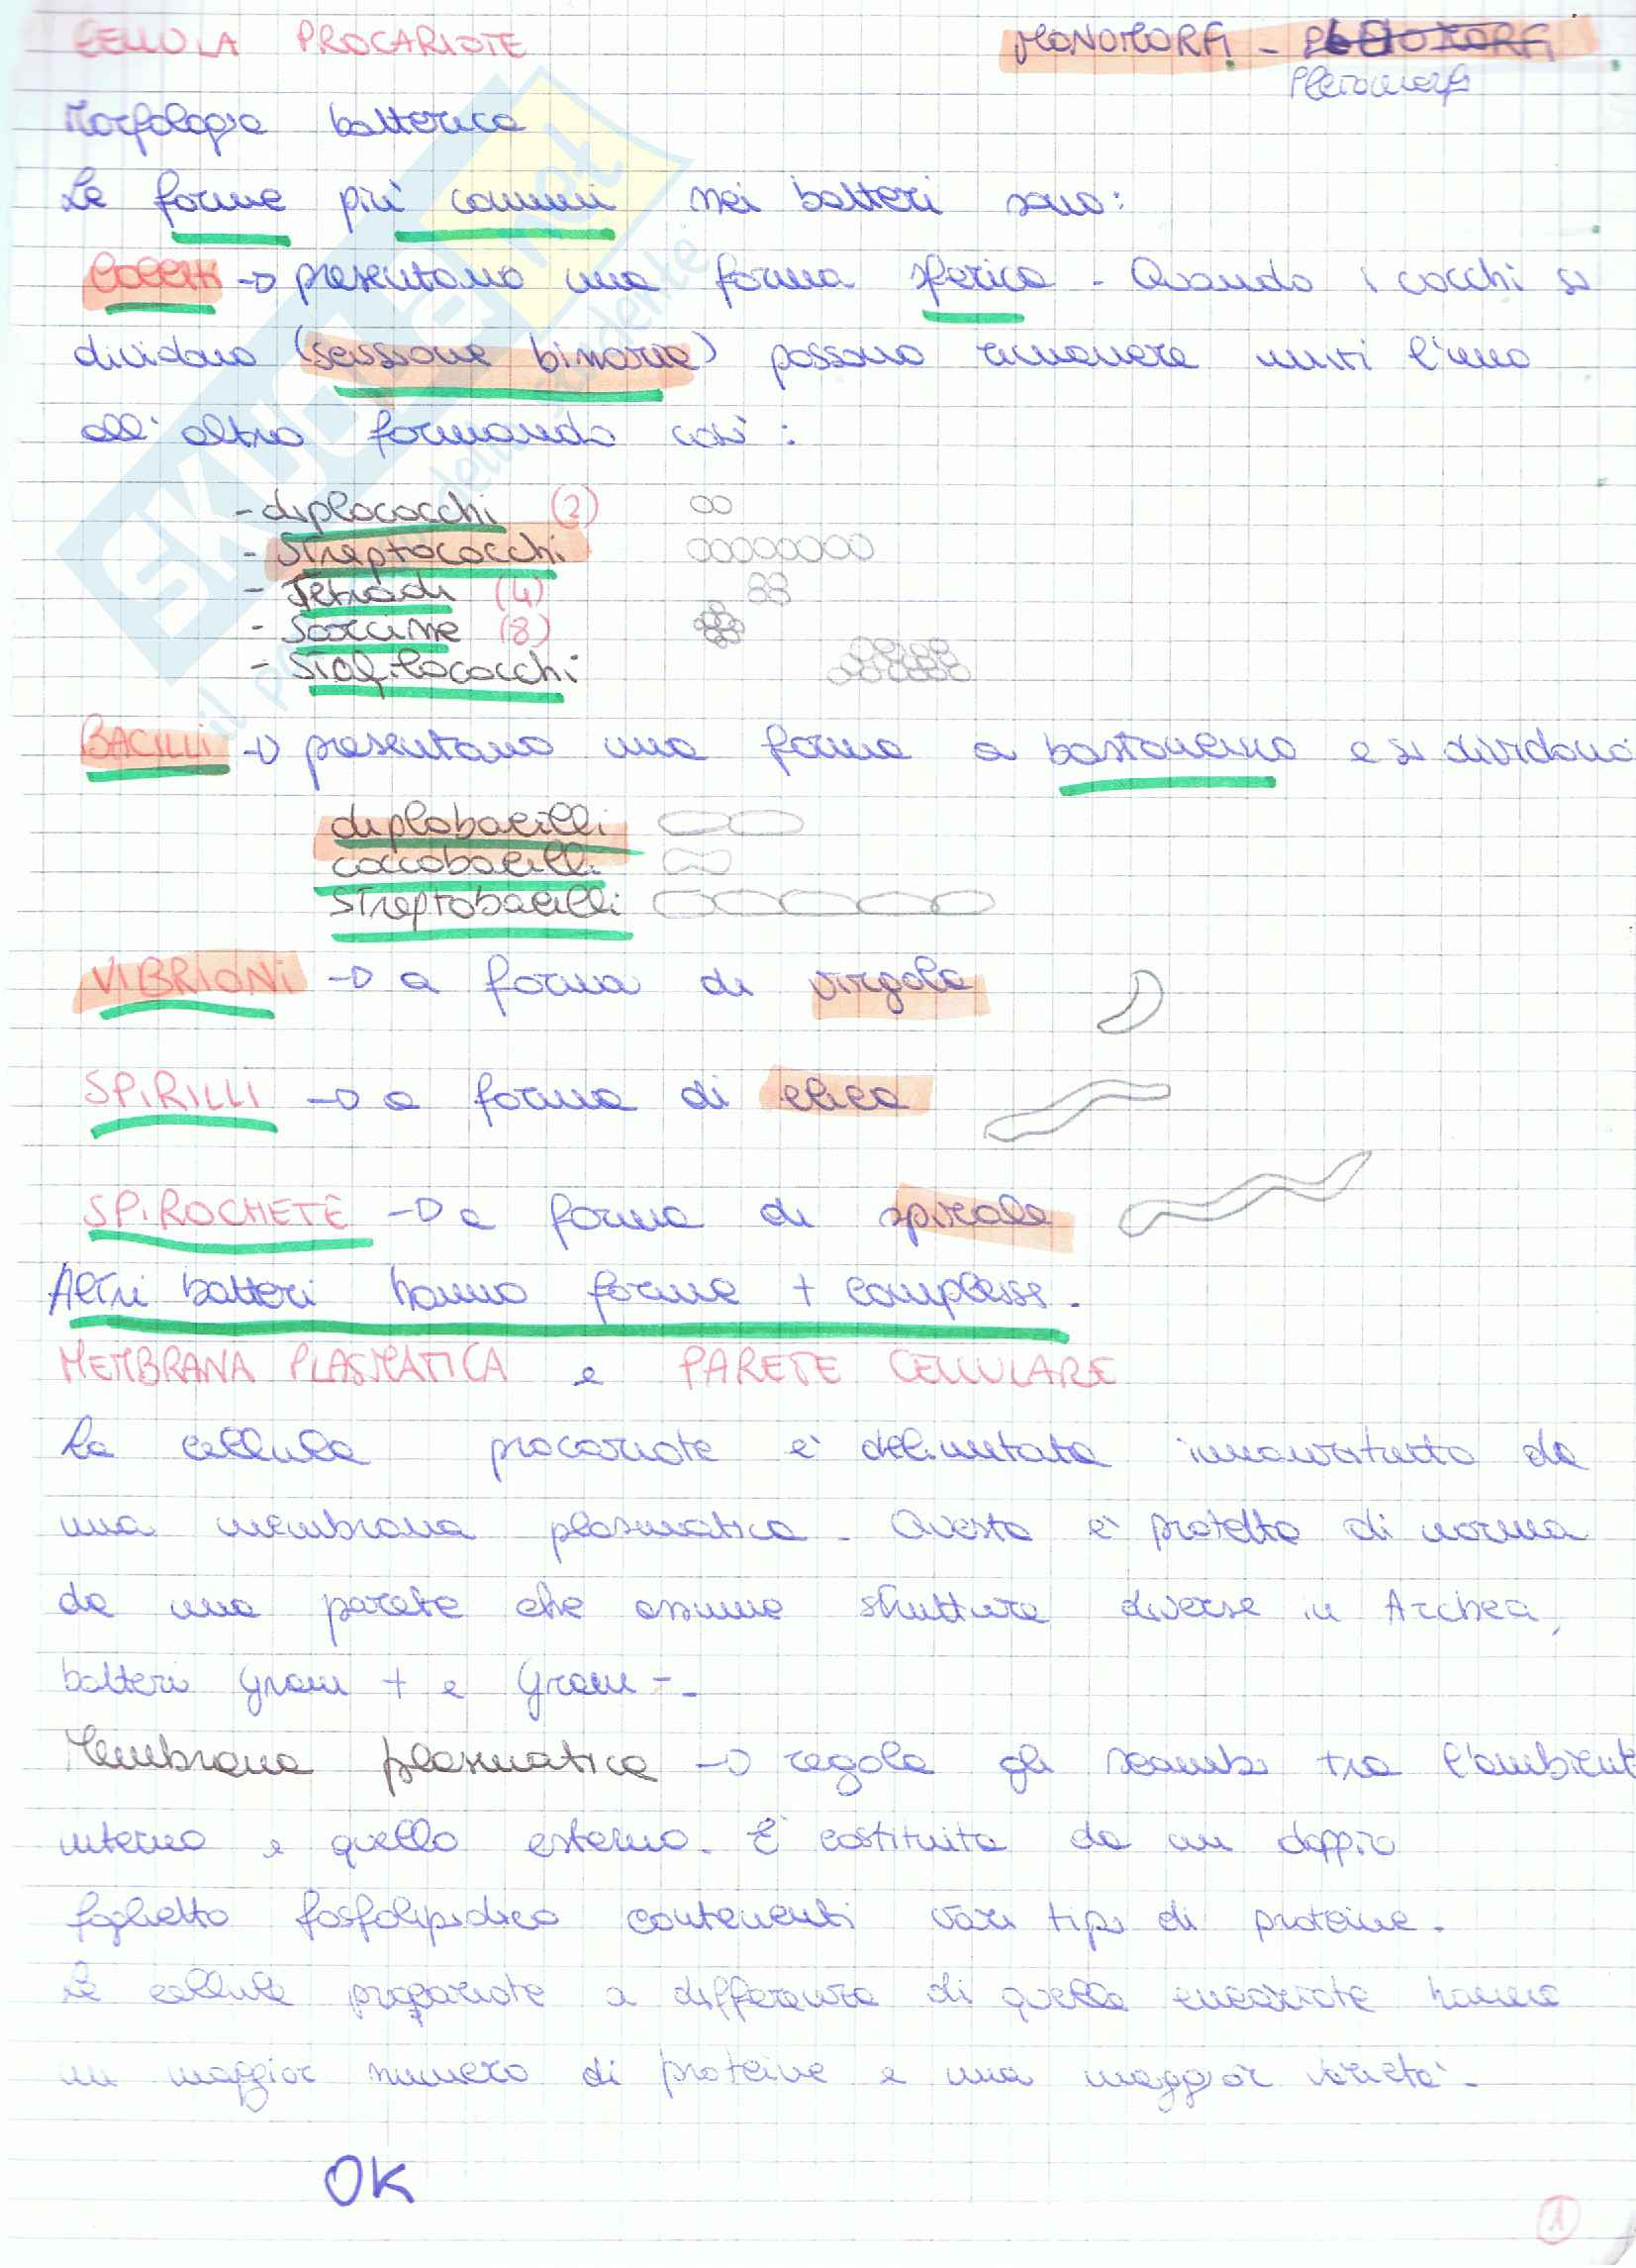 CELLULA PROCARIOTE
MONOMORFI - PLEOMORFI
Pleiomorfi
Morfologia batterica
Le forme più comuni nei batteri sono:
COCCHI → presentano una forma sferica - Quando i cocchi si
dividono (scissione binaria) possono rimanere uniti l'uno
all'altro formando così:
- diplococchi (2)
- Streptococchi
- Tetradi (4)
- Sarcine (8)
- Stafilococchi
BACILLI → presentano una forma a bastoncino e si dividono
diplobacilli
coccobacilli
Streptobacilli
VIBRIONI → a forma di virgola
SPIRILLI → a forma di elica
SPIROCHETE → a forma di spirale
Altri batteri hanno forme + complesse.
MEMBRANA PLASMATICA e PARETE CELLULARE
La cellula procariote è delimitata innanzitutto da
una membrana plasmatica. Questa è protetta di norma
da una parete che assume strutture diverse in Archea,
batteri gram + e Gram -.
Membrana plasmatica → regola gli scambi tra l'ambient
interno e quello esterno. E' costituita da un doppio
foglietto fosfolipidico contenenti vari tipi di proteine.
Le cellule procariote a differenza di quelle eucariote hanno
un maggior numero di proteine e una maggior varietà.
OK
1
SKUOLA.net